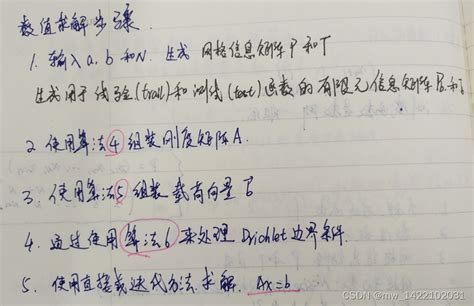 数值求解步骤
1. 输入a,b和N. 生成 网格信息矩阵P和T
生成用于试验(trail)和测试(test)函数的有限元信息矩阵Pb和
2. 使用算法4组装刚度矩阵A.
3. 使用算法5组装载荷向量b
4. 通过使用算法6来处理Dirichlet边界条件.
5. 使用直接或迭代方法求解 Ax=b
CSDN @mw_1422102031